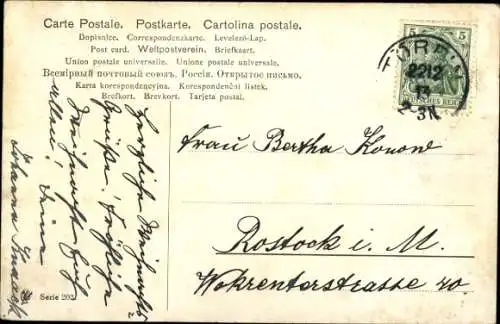 Carte Postale. Postkarte. Cartolina postale.
Dopisnice. Correspondenzkarte. Levelező-Lap.
Post card. Weltpostverein. Briefkaart.
Union postale universelle. Unione postale universale.
Всемірный почтовый союзъ. Россія. Открытое письмо.
Karta korespondencyjna. Korespondenční listek.
Brefkort. Brevkort. Tarjeta postal.
5 5
DEUTSCHES REICH
2212
14
3N
Herzliche Weihnachts
Grüße! Fröhliche
Weihnacht Euch
allen! Deine
Johanna
Frau Bertha Konow
Rostock i. M.
Wokrenterstrasse 40.
Serie 203